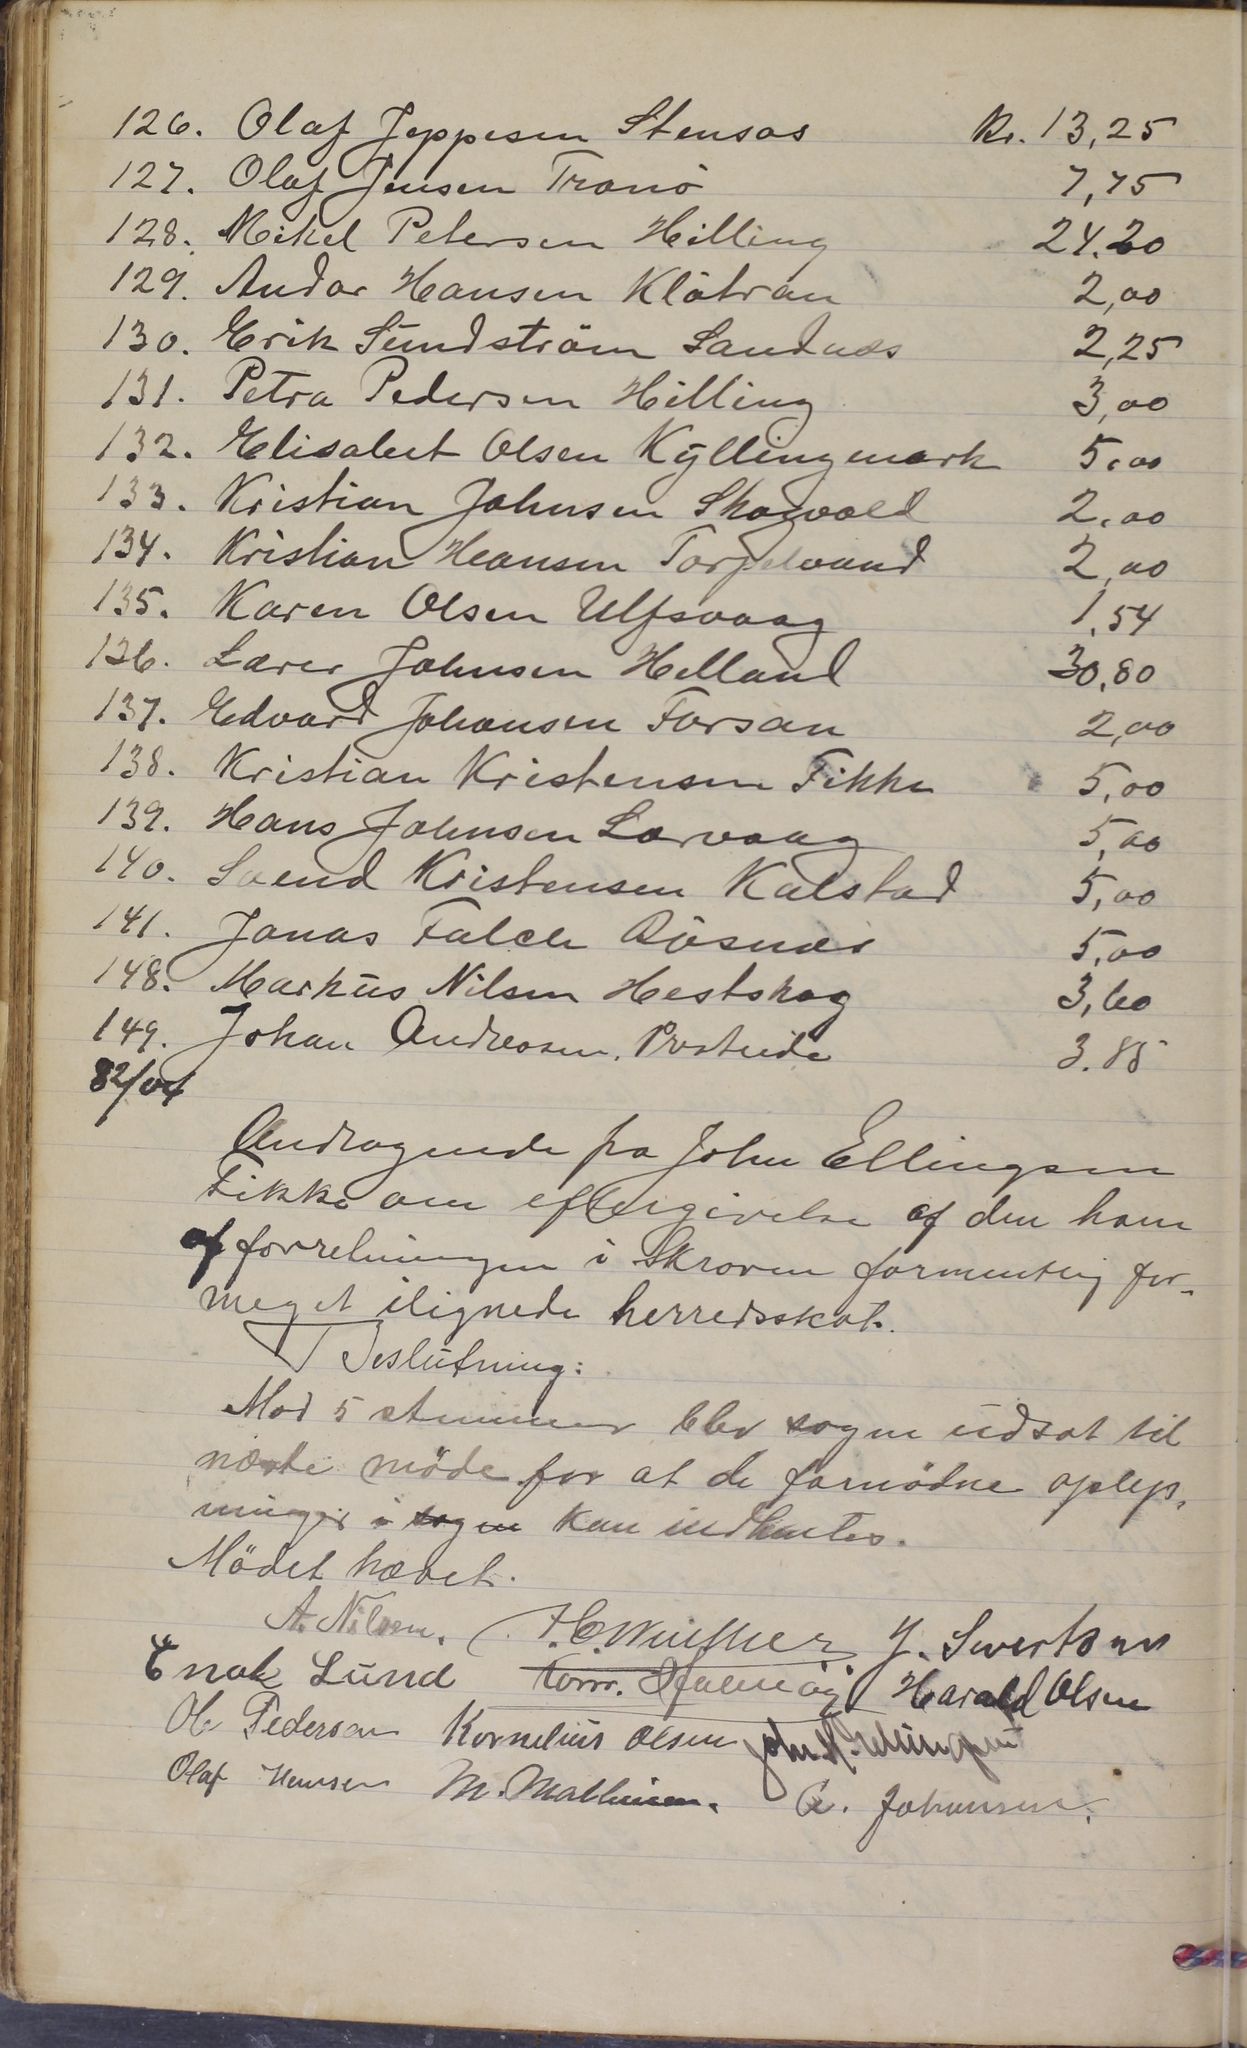 126. Olaf Jeppesen Stensas Kr. 13,25
127. Olaf Jensen Tranö 7,75
128. Mikel Petersen Hilling 24.20
129. Andor Hansen Klötran 2,00
130. Erik Sundström Sandnæs 2,25
131. Petra Pedersen Hilling 3,00
132. Elisabet Olsen Kyllingmark 5,00
133. Kristian Johnsen Skogvold 2,00
134. Kristian Hansen Torpelvand 2,00
135. Karen Olsen Ulfsvaag 1,54
136. Lærer Johnsen Helland 30,80
137. Edvard Johansen Forsan 2,00
138. Kristian Kristensen Fikke 5,00
139. Hans Johnsen Lorvaag 5,00
140. Svend Kristensen Kalstad 5,00
141. Jonas Falch Rösnæs 5,00
148. Markus Nilsen Hestskog 3,60
149. Johan Andreasen. 3.85
82/04
Andragende fra John Ellingsen
Fikke om eftergivelse af den ham
af forretningen i Skroven formentlig for-
meget ilignede herredsskat.
Beslutning:
Mod 5 stemmer blev sagen udsat til
næste möde for at de fornödne oplys-
ninger i sagen kan indhentes.
Mödet hævet.
A. Nilsen. J. Sivertsen
Enok Lund Harald Olsen
Ole Pedersen Kornelius Olsen John H. Ellingsen
Olaf Hansen M. Mathisen. A. Johansen.